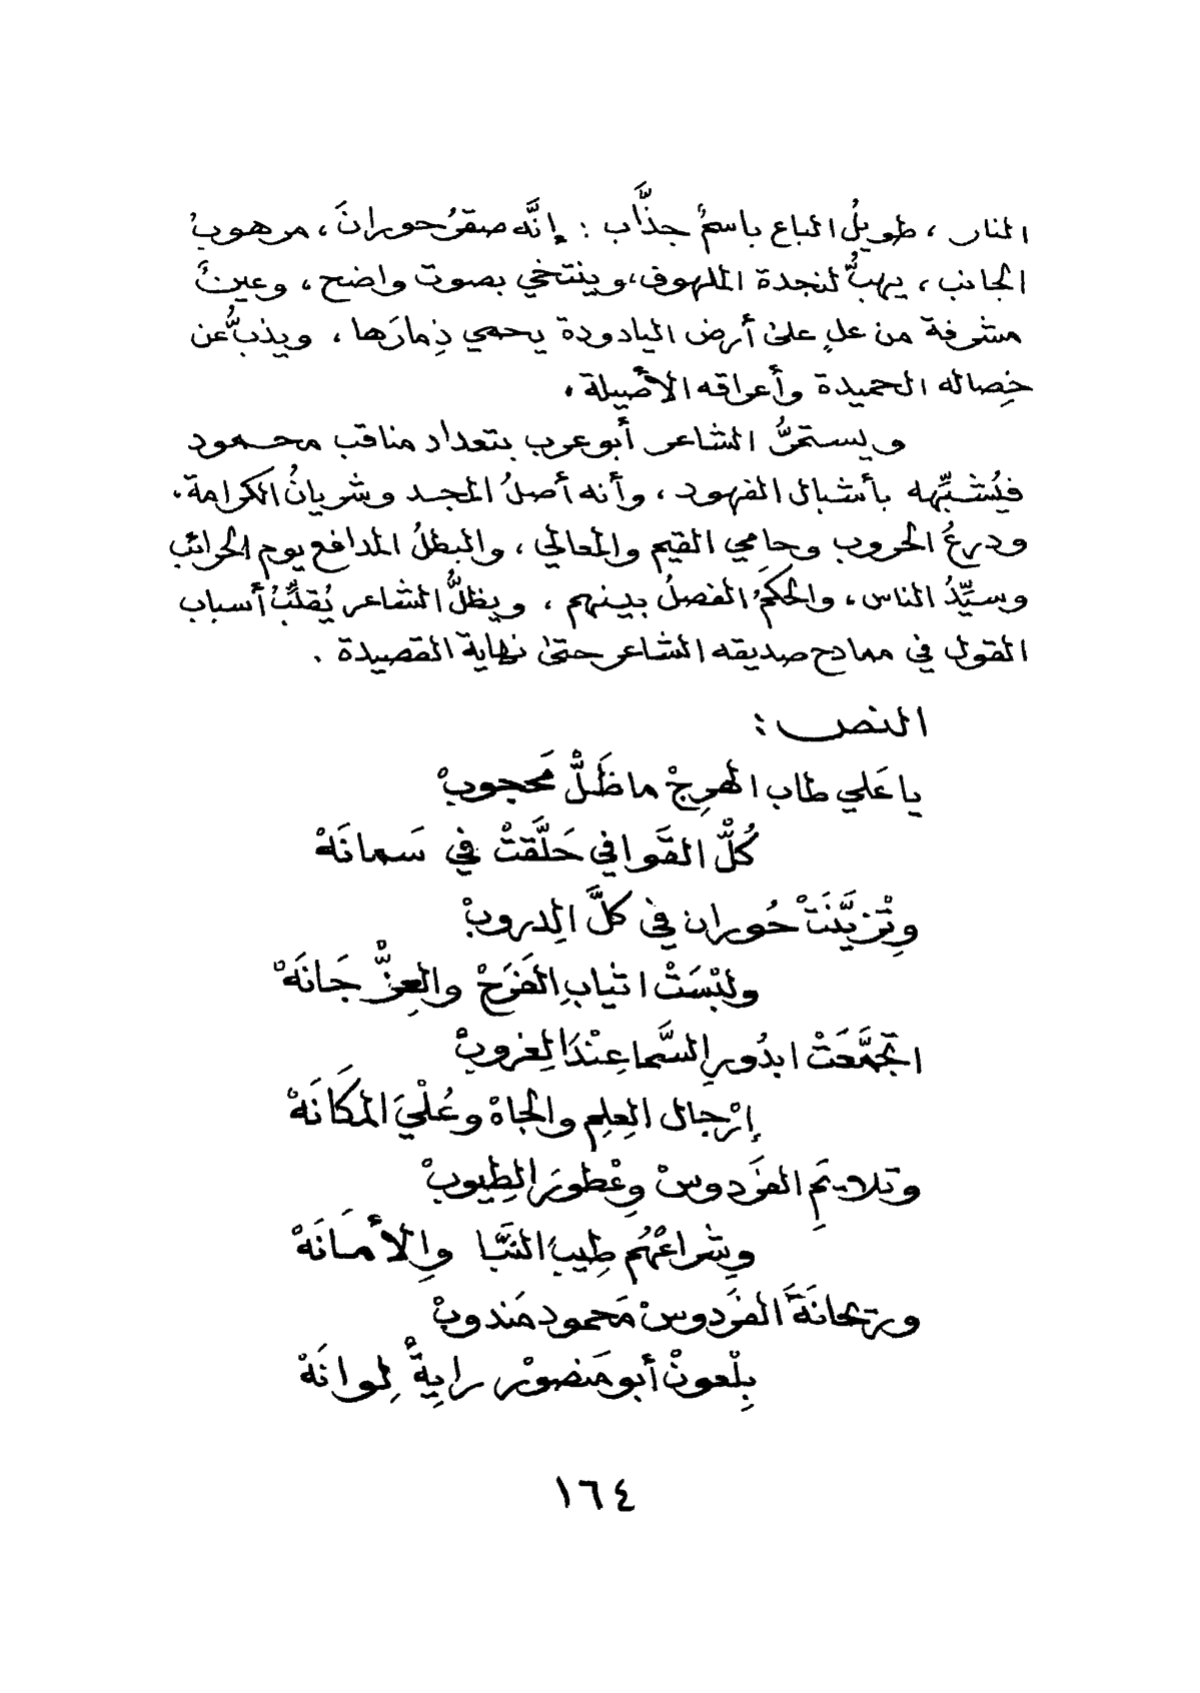 النار ، طويلُ الباع باسمٌ جذَّاب : إنَّه صقرُ حورانَ ، مرهوبُ
الجانب ، يهبُّ لنجدة الملهوف ، وينتخي بصوت واضح ، وعينٌ
مشرفة من علٍ على أرض اليادودة يحمي ذِمارَها ، ويذبُّ عن
خِصاله الحميدة وأعراقه الأصيلة .
ويستمرُّ الشاعر أبو عرب بتعداد مناقب محمود
فيُشبِّهه بأشبال الفهود ، وأنه أصلُ المجد وشريانُ الكرامة .
ودرعُ الحروب وحامي القيم والمعالي ، والبطلُ المدافع يوم الحرائب
وسيِّدُ الناس ، والحكَمُ الفصلُ بينهم ، ويظلُّ الشاعر يُقلِّبُ أسباب
القول في ممادح صديقه الشاعر حتى نهاية القصيدة .
النص :
يا عَلي طاب الهرِجْ ما ظَلّْ مَحجوبْ
كُلّْ القَوافي حَلَّقتْ في سَمانَهْ
وِتْزيَّنَتْ حُوران في كلَّ الِدروبْ
ولبْسَتْ اثيابِ الفَرَحْ والعِزّْ جَانَهْ
اتجَمَّعَتْ ابدُورِ السَّما عِنْدَ الِغروبْ
إرْجال العِلِم والجاهْ وعُلْيَ المكَانَهْ
وتلايَمِ الفرَدوسْ وِعْطورَ الطِيوبْ
وِشراعْهُم طِيبَ النَّبا والِأمَانَهْ
وريحانَةَ الفرَدوسْ مَحمود مَندوبْ
بِلْعونْ أبو مَنصورْ رايِةْ لِوانَهْ
١٦٤